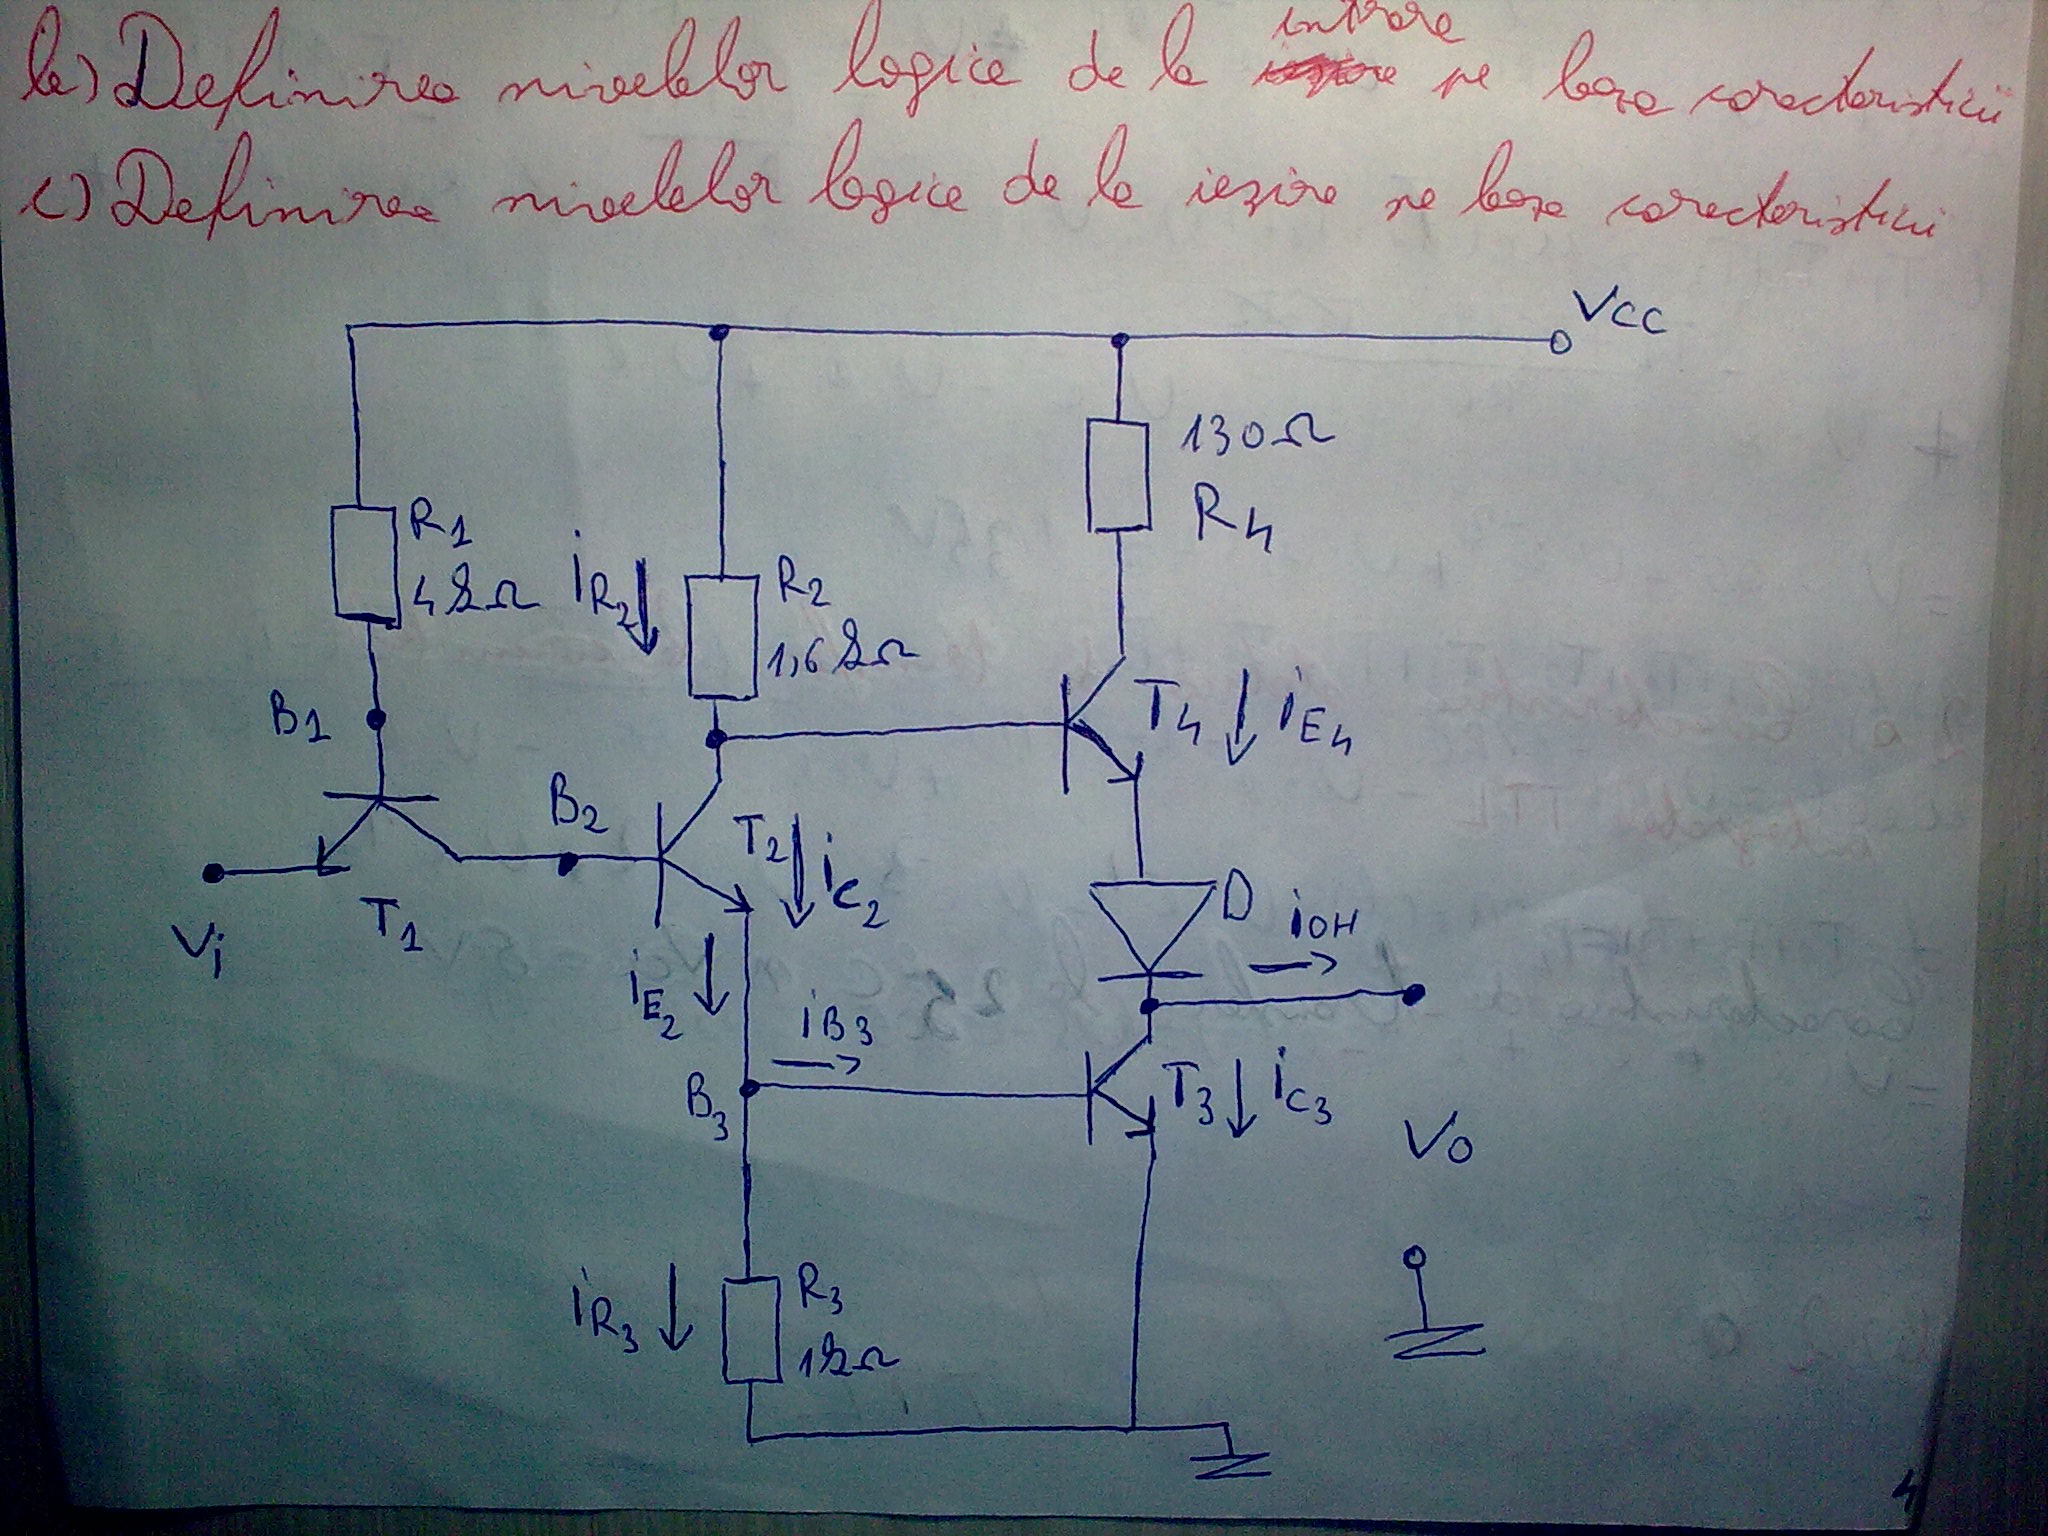 intrare
b) Definirea nivelelor logice de la pe baza caracteristicii
c) Definirea nivelelor logice de la ieșire pe baza caracteristicii
VCC
130Ω
R4
R1
4kΩ
iR2
R2
1,6kΩ
B1
T4
iE4
B2
T2
iC2
Vi
T1
D
iOH
iE2
iB3
B3
T3
iC3
Vo
iR3
R3
1kΩ
4